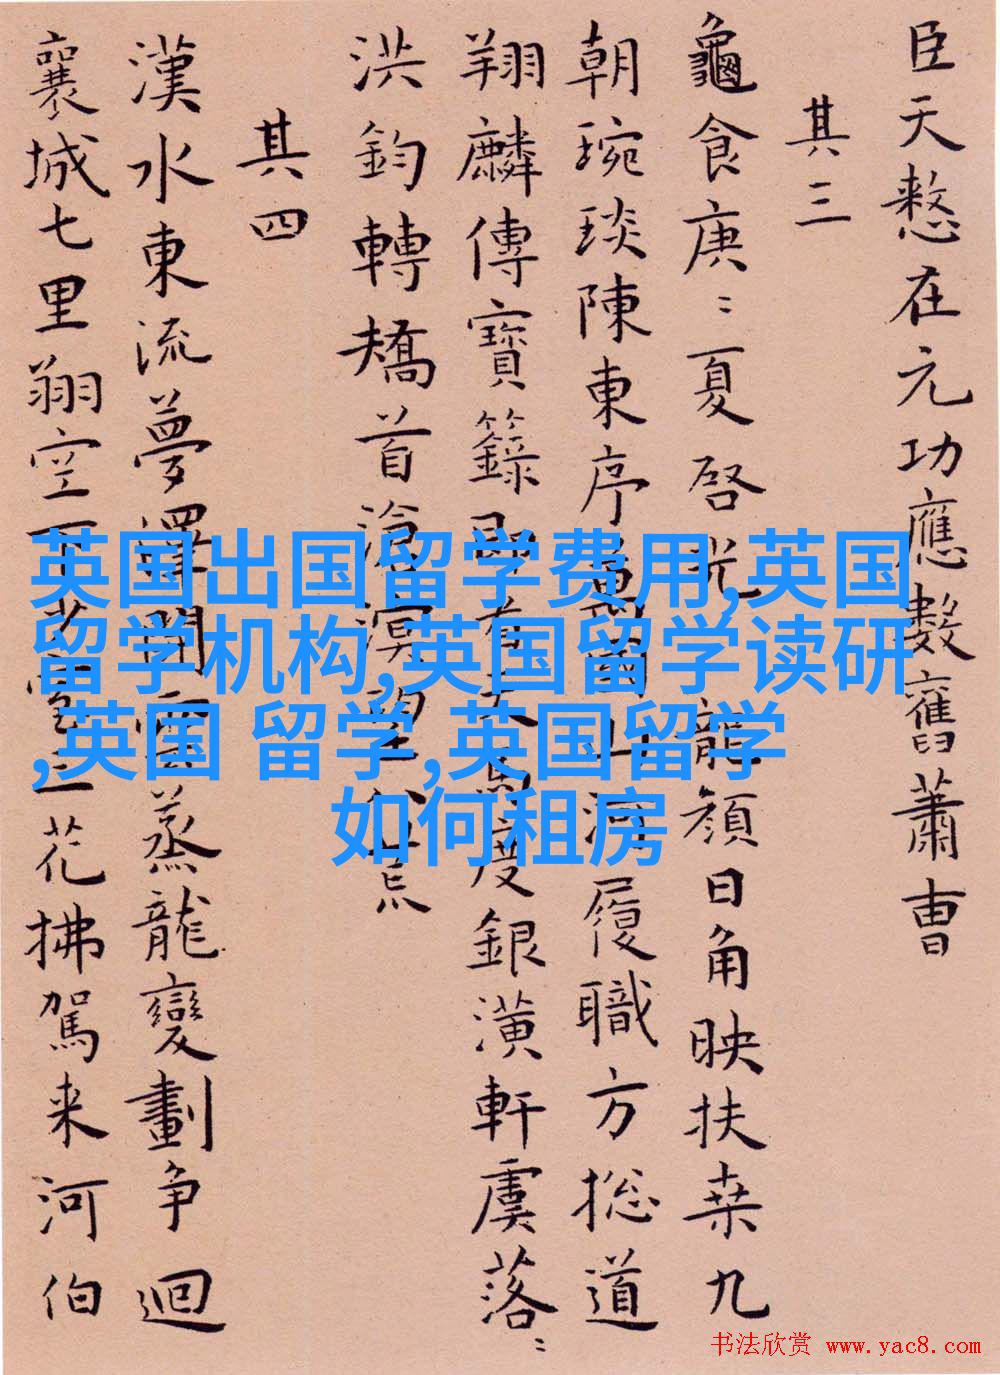 臣天憖在元功應數舊蕭曹
其三
龜食庚〻夏啓光龍顏日角映扶桒九
朝琬琰陳東序萬國山河履職方捴道
翔麟傳寶籙即看天馬度銀潢軒虞落〻
洪鈞轉矯首滄溟望八荒
其四
漢水東流夢澤開雲蒸龍變劃争迴
襄城七里翔空下花拂駕来河伯
英国出国留学费用,英国
留学机构,英国留学读研
,英国 留学,英国留学
如何租房
书法欣赏 www.yac8.com